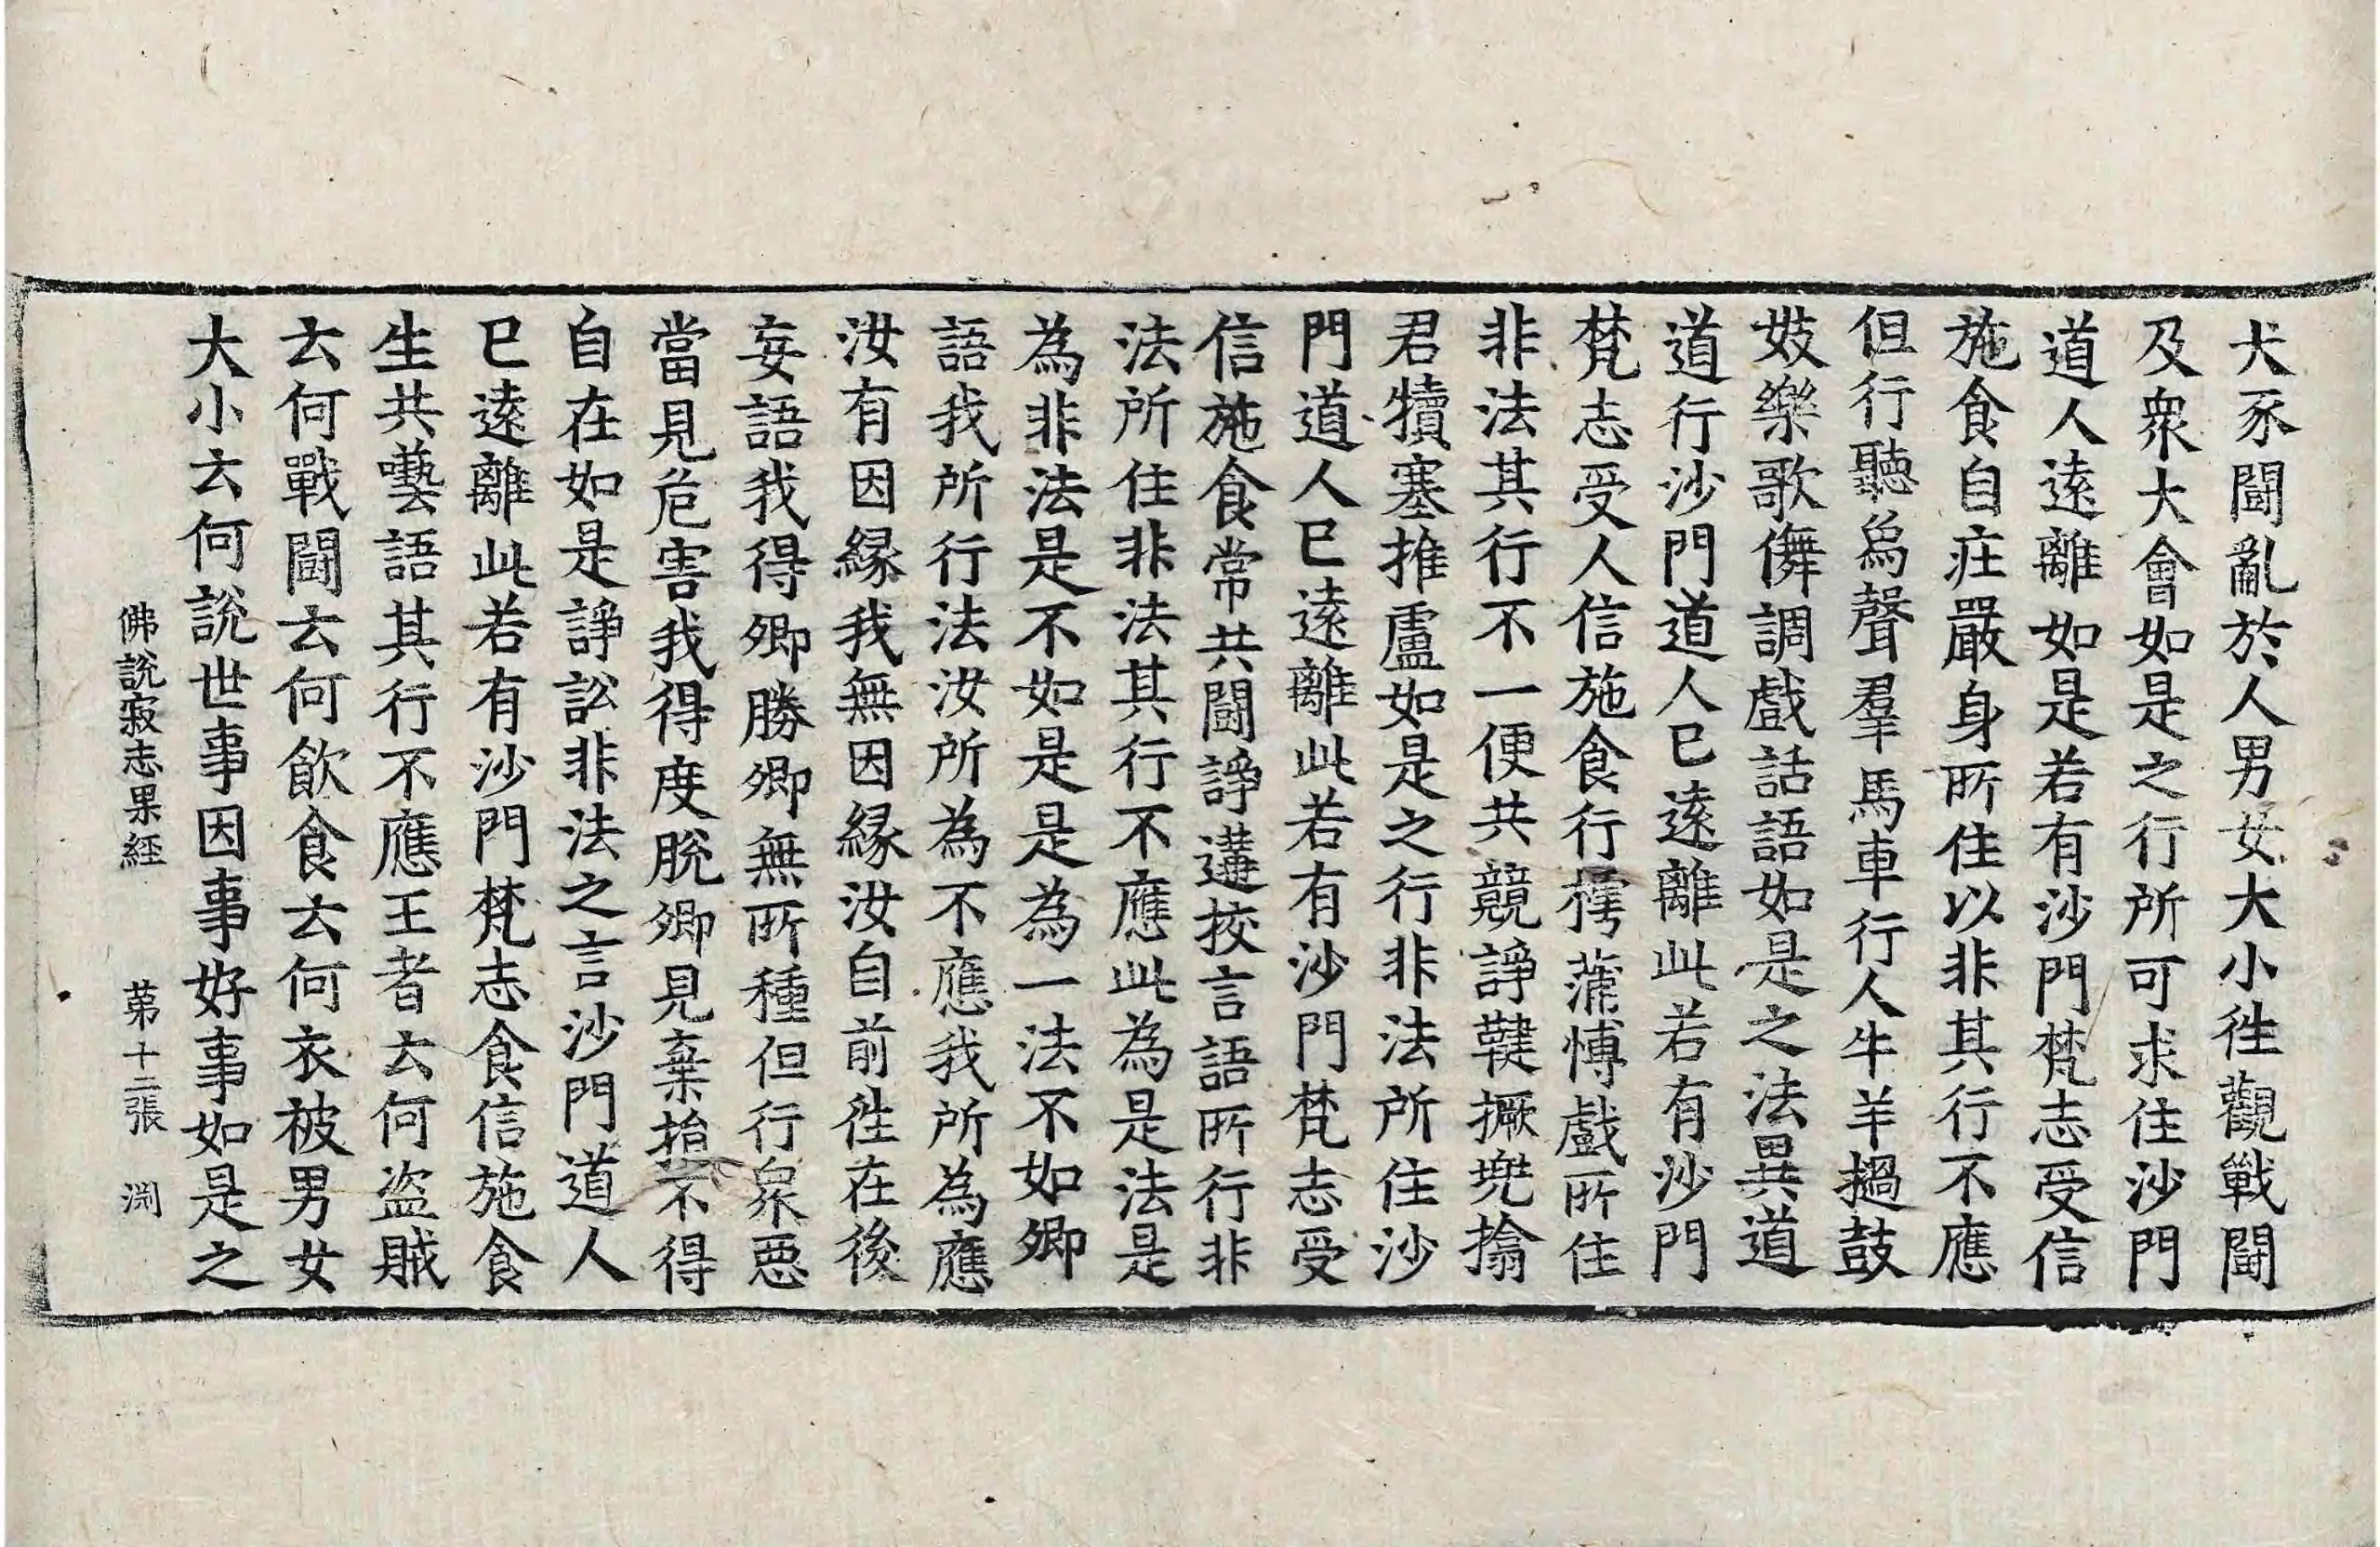 犬豕鬪亂於人男女大小徃觀戰鬪
及衆大會如是之行所可求住沙門
道人遠離如是若有沙門梵志受信
施食自疘嚴身所住以非其行不應
但行聽烏聲羣馬車行人牛羊撾鼓
妓樂歌儛調戲話語如是之法異道
道行沙門道人已遠離此若有沙門
梵志受人信施食行摴蒱博戲所住
非法其行不一便共競諍鞬撅㙮
君犢塞推盧如是之行非法所住沙
門道人已遠離此若有沙門梵志受
信施食常共鬪諍遘挍言語所行非
法所住非法其行不應此為是法是
為非法是不如是是為一法不如卿
語我所行法汝所為不應我所為應
汝有因緣我無因緣汝自前徃在後
妄語我得卿勝卿無所種但行衆惡
當見危害我得度脫卿見棄捐不得
自在如是諍訟非法之言沙門道人
已遠離此若有沙門梵志食信施食
生共囈語其行不應王者云何盜賊
云何戰鬪云何飲食云何衣被男女
大小云何說世事因事好事如是之
佛說寂志果經　苐十二張　渕